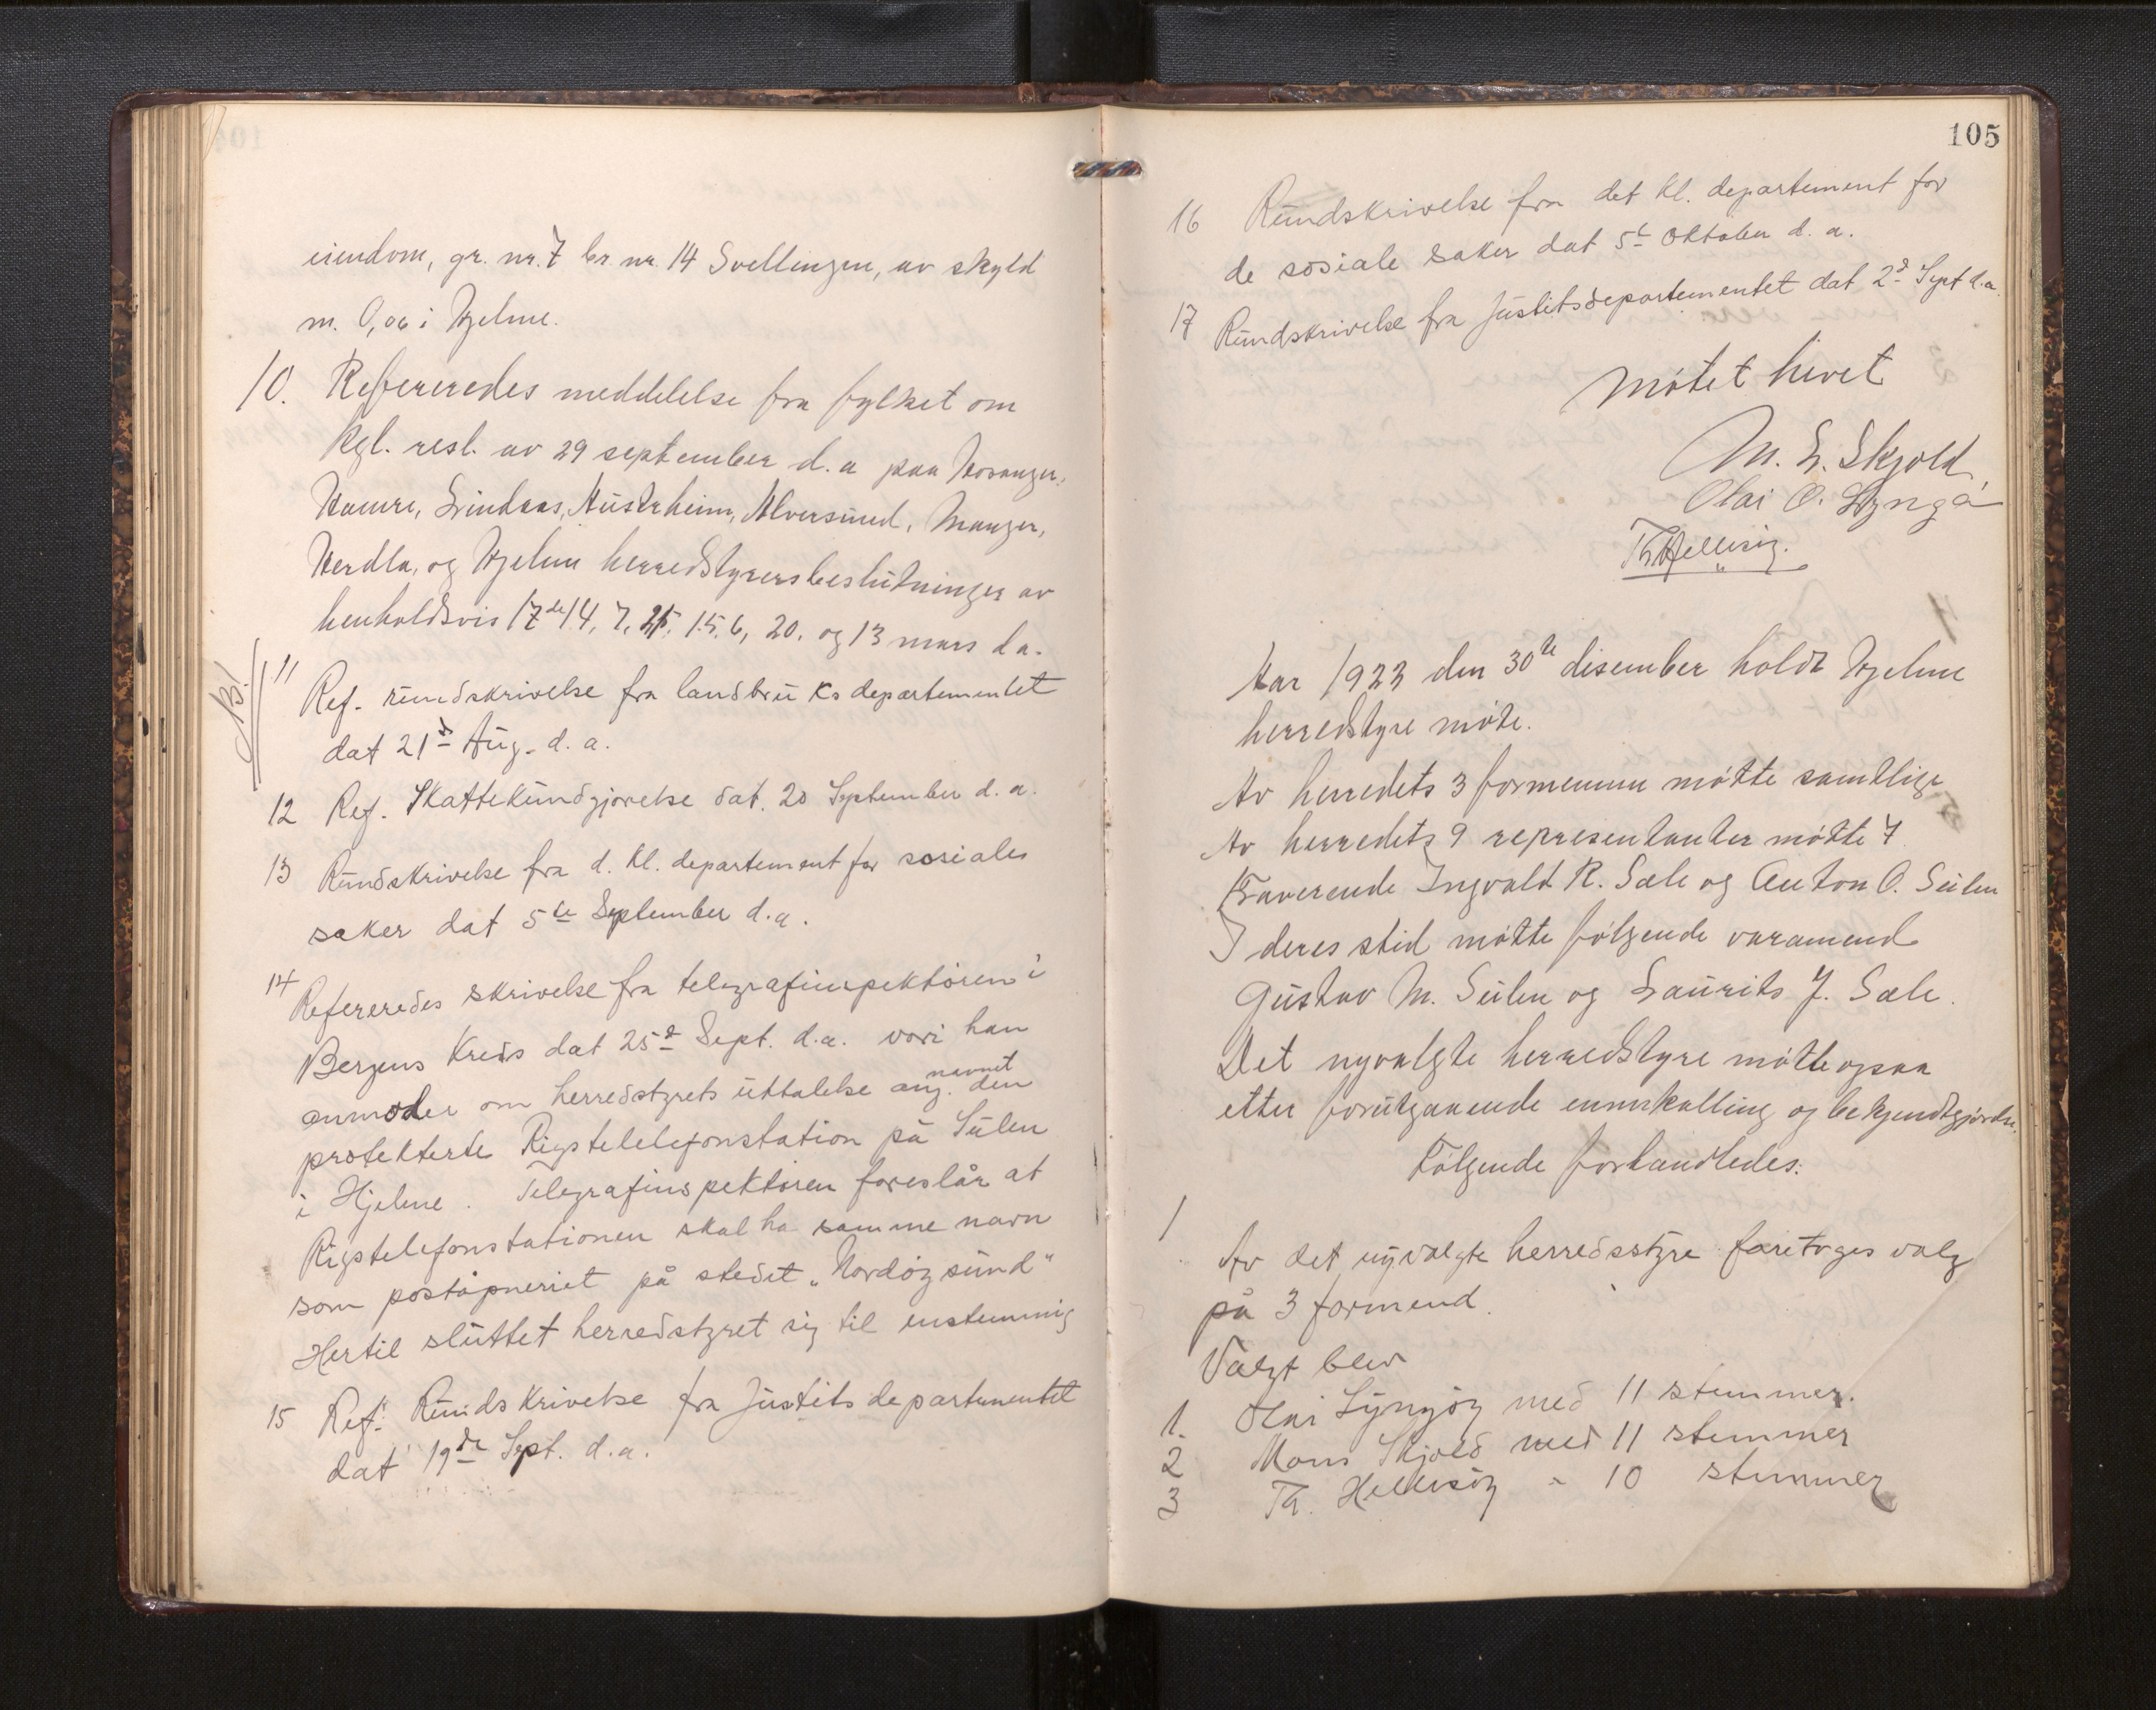 eiendom, gr. nr. 7 br. nr. 14 Svellingen, av skyld
m. 0,06 i Hjelme.
10. Refereredes meddelelse fra fylket om
Kgl. resl. av 29 september d. a paa Hosanger,
Hamre, Lindaas, Austrheim, Alversund, Manger,
Herdla, og Hjelme herredstyrersbeslutninger av
henholdsvis 17de 14, 7, 15, 6, 20. og 13 mars d a.
N.B!
11 Ref. rundskrivelse fra landbruksdepartementet
dat 21d Aug. d. a.
12 Ref. Skattekundgjørelse dat. 20 September d. a.
13 Rundskrivelse fra d. kl. departement for sosiales
saker dat 5te September d. a.
14 Refereredes skrivelse fra telegrafinspektøren i
Bergens Kreds dat 25d Sept. d. a. vori han
navnet
anmoder om herredstyrets uttalelse ang. den
protekterte Rigstelefonstation på Sulen
i Hjelme. Telegrafinspektøren foreslår at
Rigstelefonstationen skal ha samme navn
som poståpneriet på stedet „Nordøysund"
Hertil sluttet herredstyret sig til enstemmig
15 Ref: Rundskrivelse fra Justitsdepartementet
dat 19de Sept. d. a.
105
16 Rundskrivelse fra det kl. departement for
de sosiale saker dat 5t Oktober d. a.
17 Rundskrivelse fra Justitsdepartementet dat 2d Sept d. a.
Møtet hevet
M. L. Skjold,
Olai O. Lyngø
Th Hellesøy.
Aar 1923 den 30te disember holdt Hjelme
herredstyre møte.
Av herredets 3 formenn møtte samtlige
Av herredets 9 representanter møtte 7
Fraverende Ingvald R. Sæle og Anton O. Sulen
I deres sted møtte følgende varamend
Gustav M. Sulen og Laurits J. Sæle.
Det nyvalgte herredstyre møtte ogsaa
etter forutgaaende innkalling og bekjendtgjørelse.
Følgende forhandledes:
1
Av det nyvalgte herredsstyre foretoges valg
på 3 formend.
Valgt blev
1. Olai Lyngøy med 11 stemmer.
2 Mons Skjold med 11 stemmer
3 Th. Hellesøy " 10 stemmer